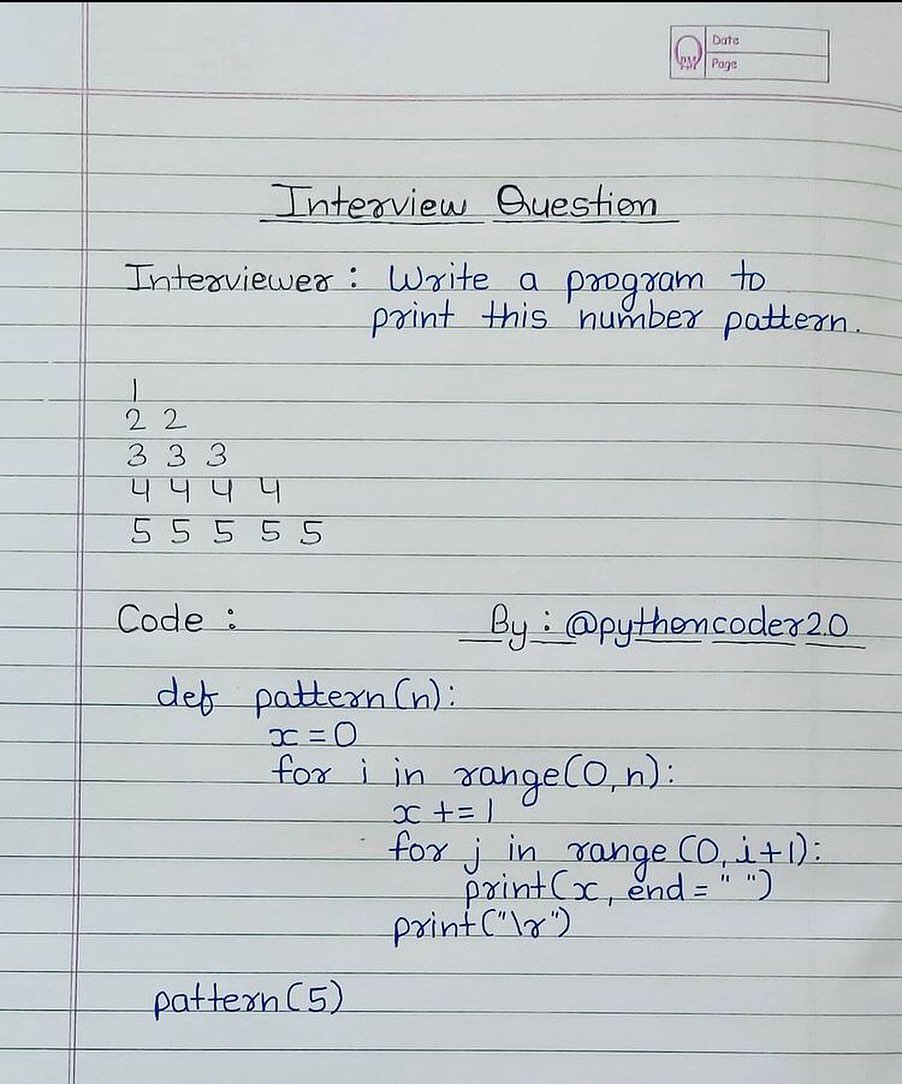 Date
Page
Interview Question
Interviewer : Write a program to
print this number pattern.
1
2 2
3 3 3
4 4 4 4
5 5 5 5 5
Code :
By : @pythoncoder2.0
def pattern(n):
x = 0
for i in range(0, n):
x += 1
for j in range (0, i+1):
print(x, end = " ")
print("\r")
pattern(5)